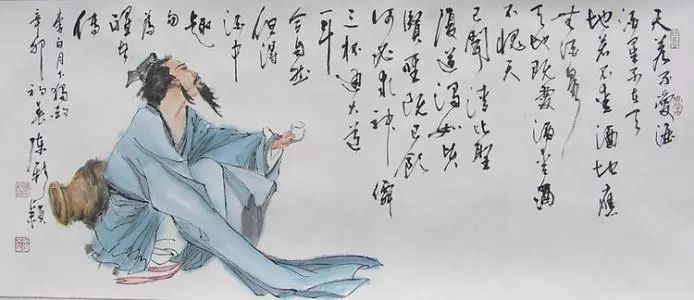 天若不愛酒
酒星不在天
地若不愛酒地應
無酒泉
天地既愛酒愛酒
不愧天
已聞清比聖
復道濁如賢
賢聖既已飲
何必求神僊
三杯通大道
一斗
合自然
但得
酒中
趣
勿
為
醒者
傳
李白月下獨酌
辛卯 陳